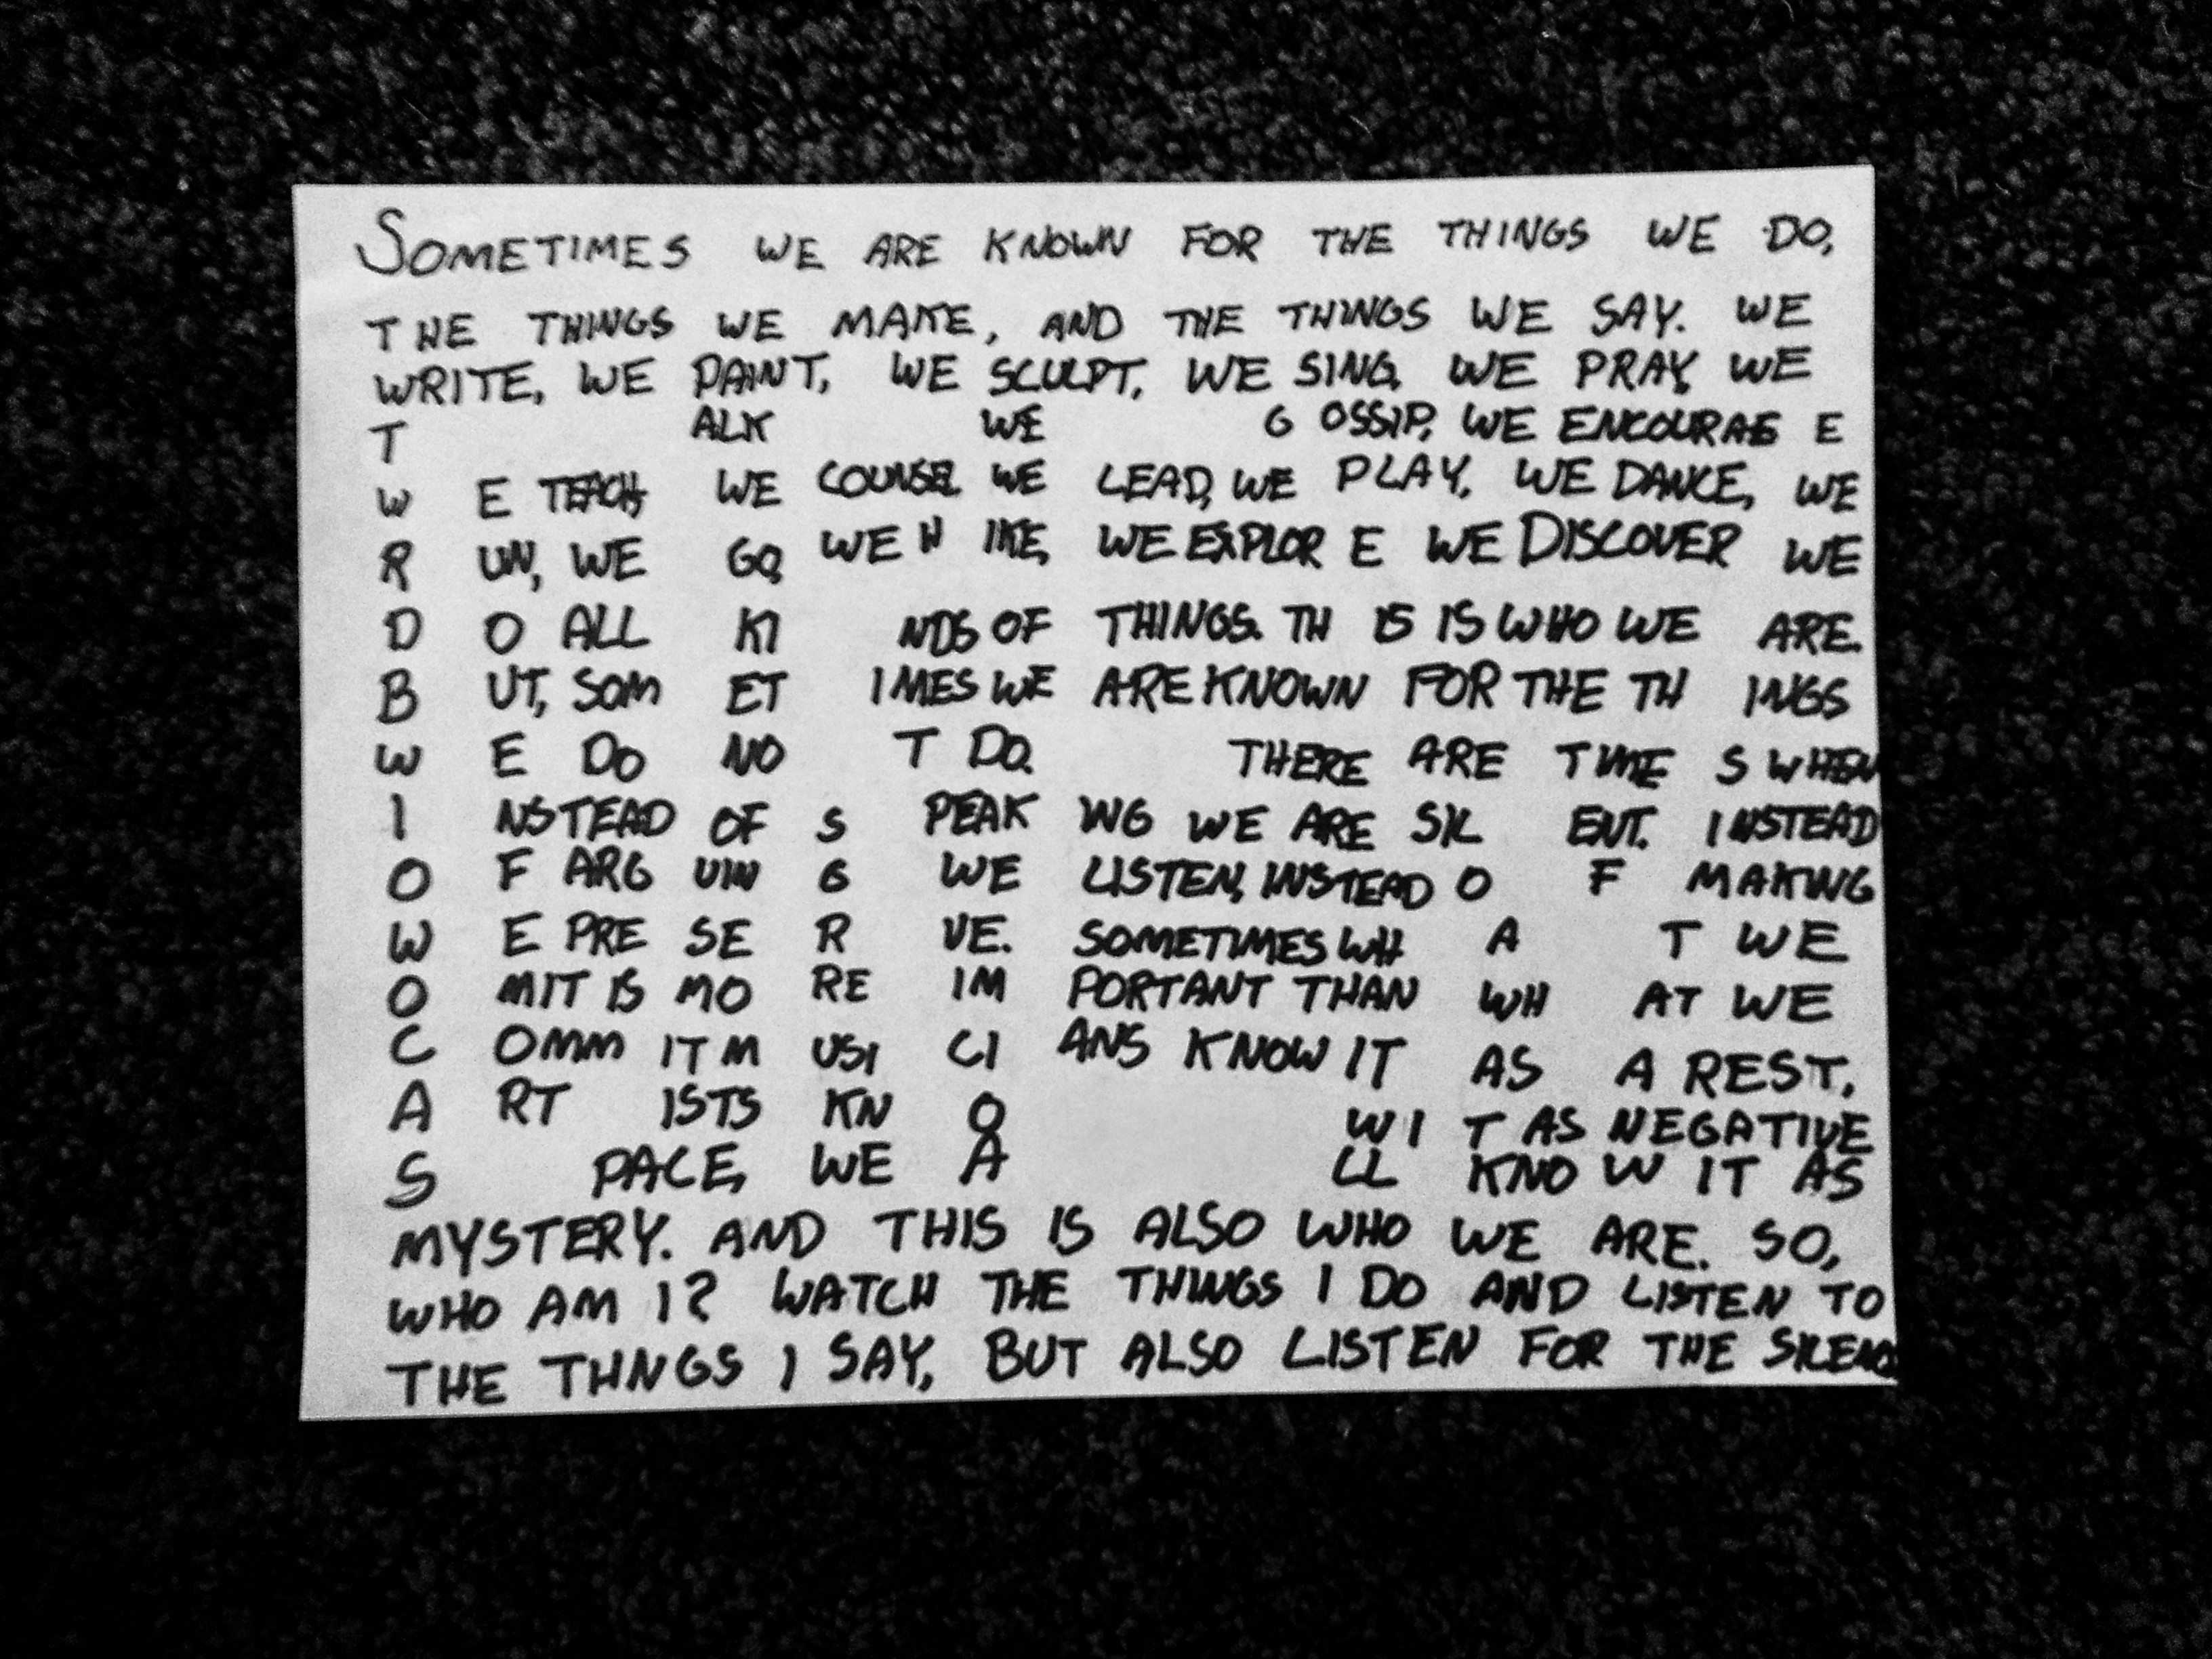 SOMETIMES WE ARE KNOWN FOR THE THINGS WE DO,
THE THINGS WE MAKE, AND THE THINGS WE SAY. WE
WRITE, WE PAINT, WE SCULPT, WE SING, WE PRAY, WE
T ALK WE G OSSIP, WE ENCOURAG E
W E TEACH, WE COUNSEL WE LEAD, WE PLAY, WE DANCE, WE
R UN, WE GO, WE H IKE, WE EXPLOR E WE DISCOVER WE
D O ALL KI NDS OF THINGS. TH IS IS WHO WE ARE.
B UT, SOM ET IMES WE ARE KNOWN FOR THE TH INGS
W E DO NO T DO. THERE ARE TIME S WHEN
I NSTEAD OF S PEAK ING WE ARE SIL ENT. INSTEAD
O F ARG UIN G WE LISTEN, INSTEAD O F MAKING
W E PRE SE R VE. SOMETIMES WH A T WE
O MIT IS MO RE IM PORTANT THAN WH AT WE
C OMM IT M USI CI ANS KNOW IT AS A REST.
A RT ISTS KN O W I T AS NEGATIVE
S PACE, WE A LL KNO W IT AS
MYSTERY. AND THIS IS ALSO WHO WE ARE. SO,
WHO AM I? WATCH THE THINGS I DO AND LISTEN TO
THE THNGS I SAY, BUT ALSO LISTEN FOR THE SILENCE